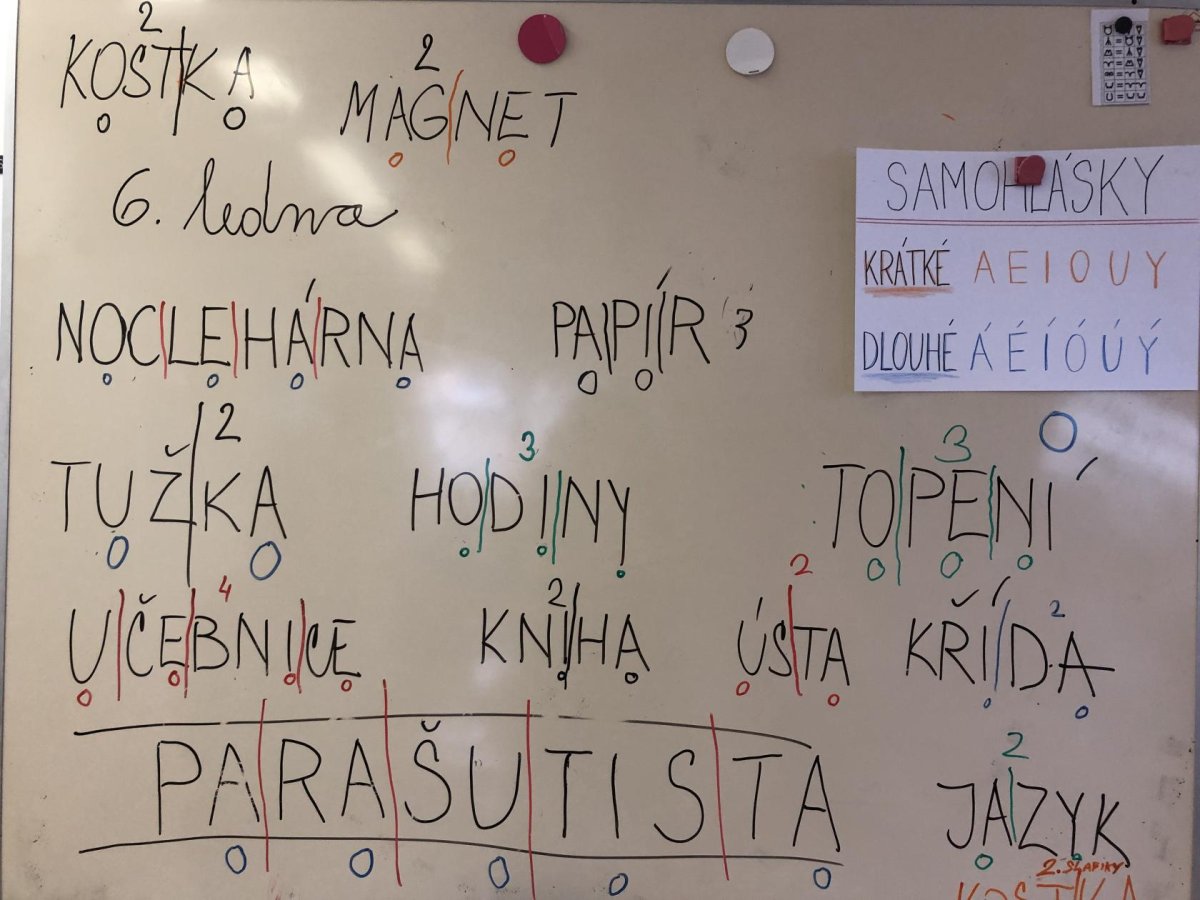 2
KOST|KA
2
MAG|NET
6. ledna
NOC|LE|HÁ|RNA
PA|PÍ|R 3
2
TUŽ|KA
3
HO|DI|NY
3
TO|PE|NÍ
4
U|ČE|BNI|CE
2
KNI|HA
2
ÚS|TA
2
KŘÍ|DA
PA|RA|ŠU|TIS|TA
2
JA|ZYK
2. SLABIKY
KOSTKA
SAMOHLÁSKY
KRÁTKÉ A E I O U Y
DLOUHÉ Á É Í Ó Ú Ý